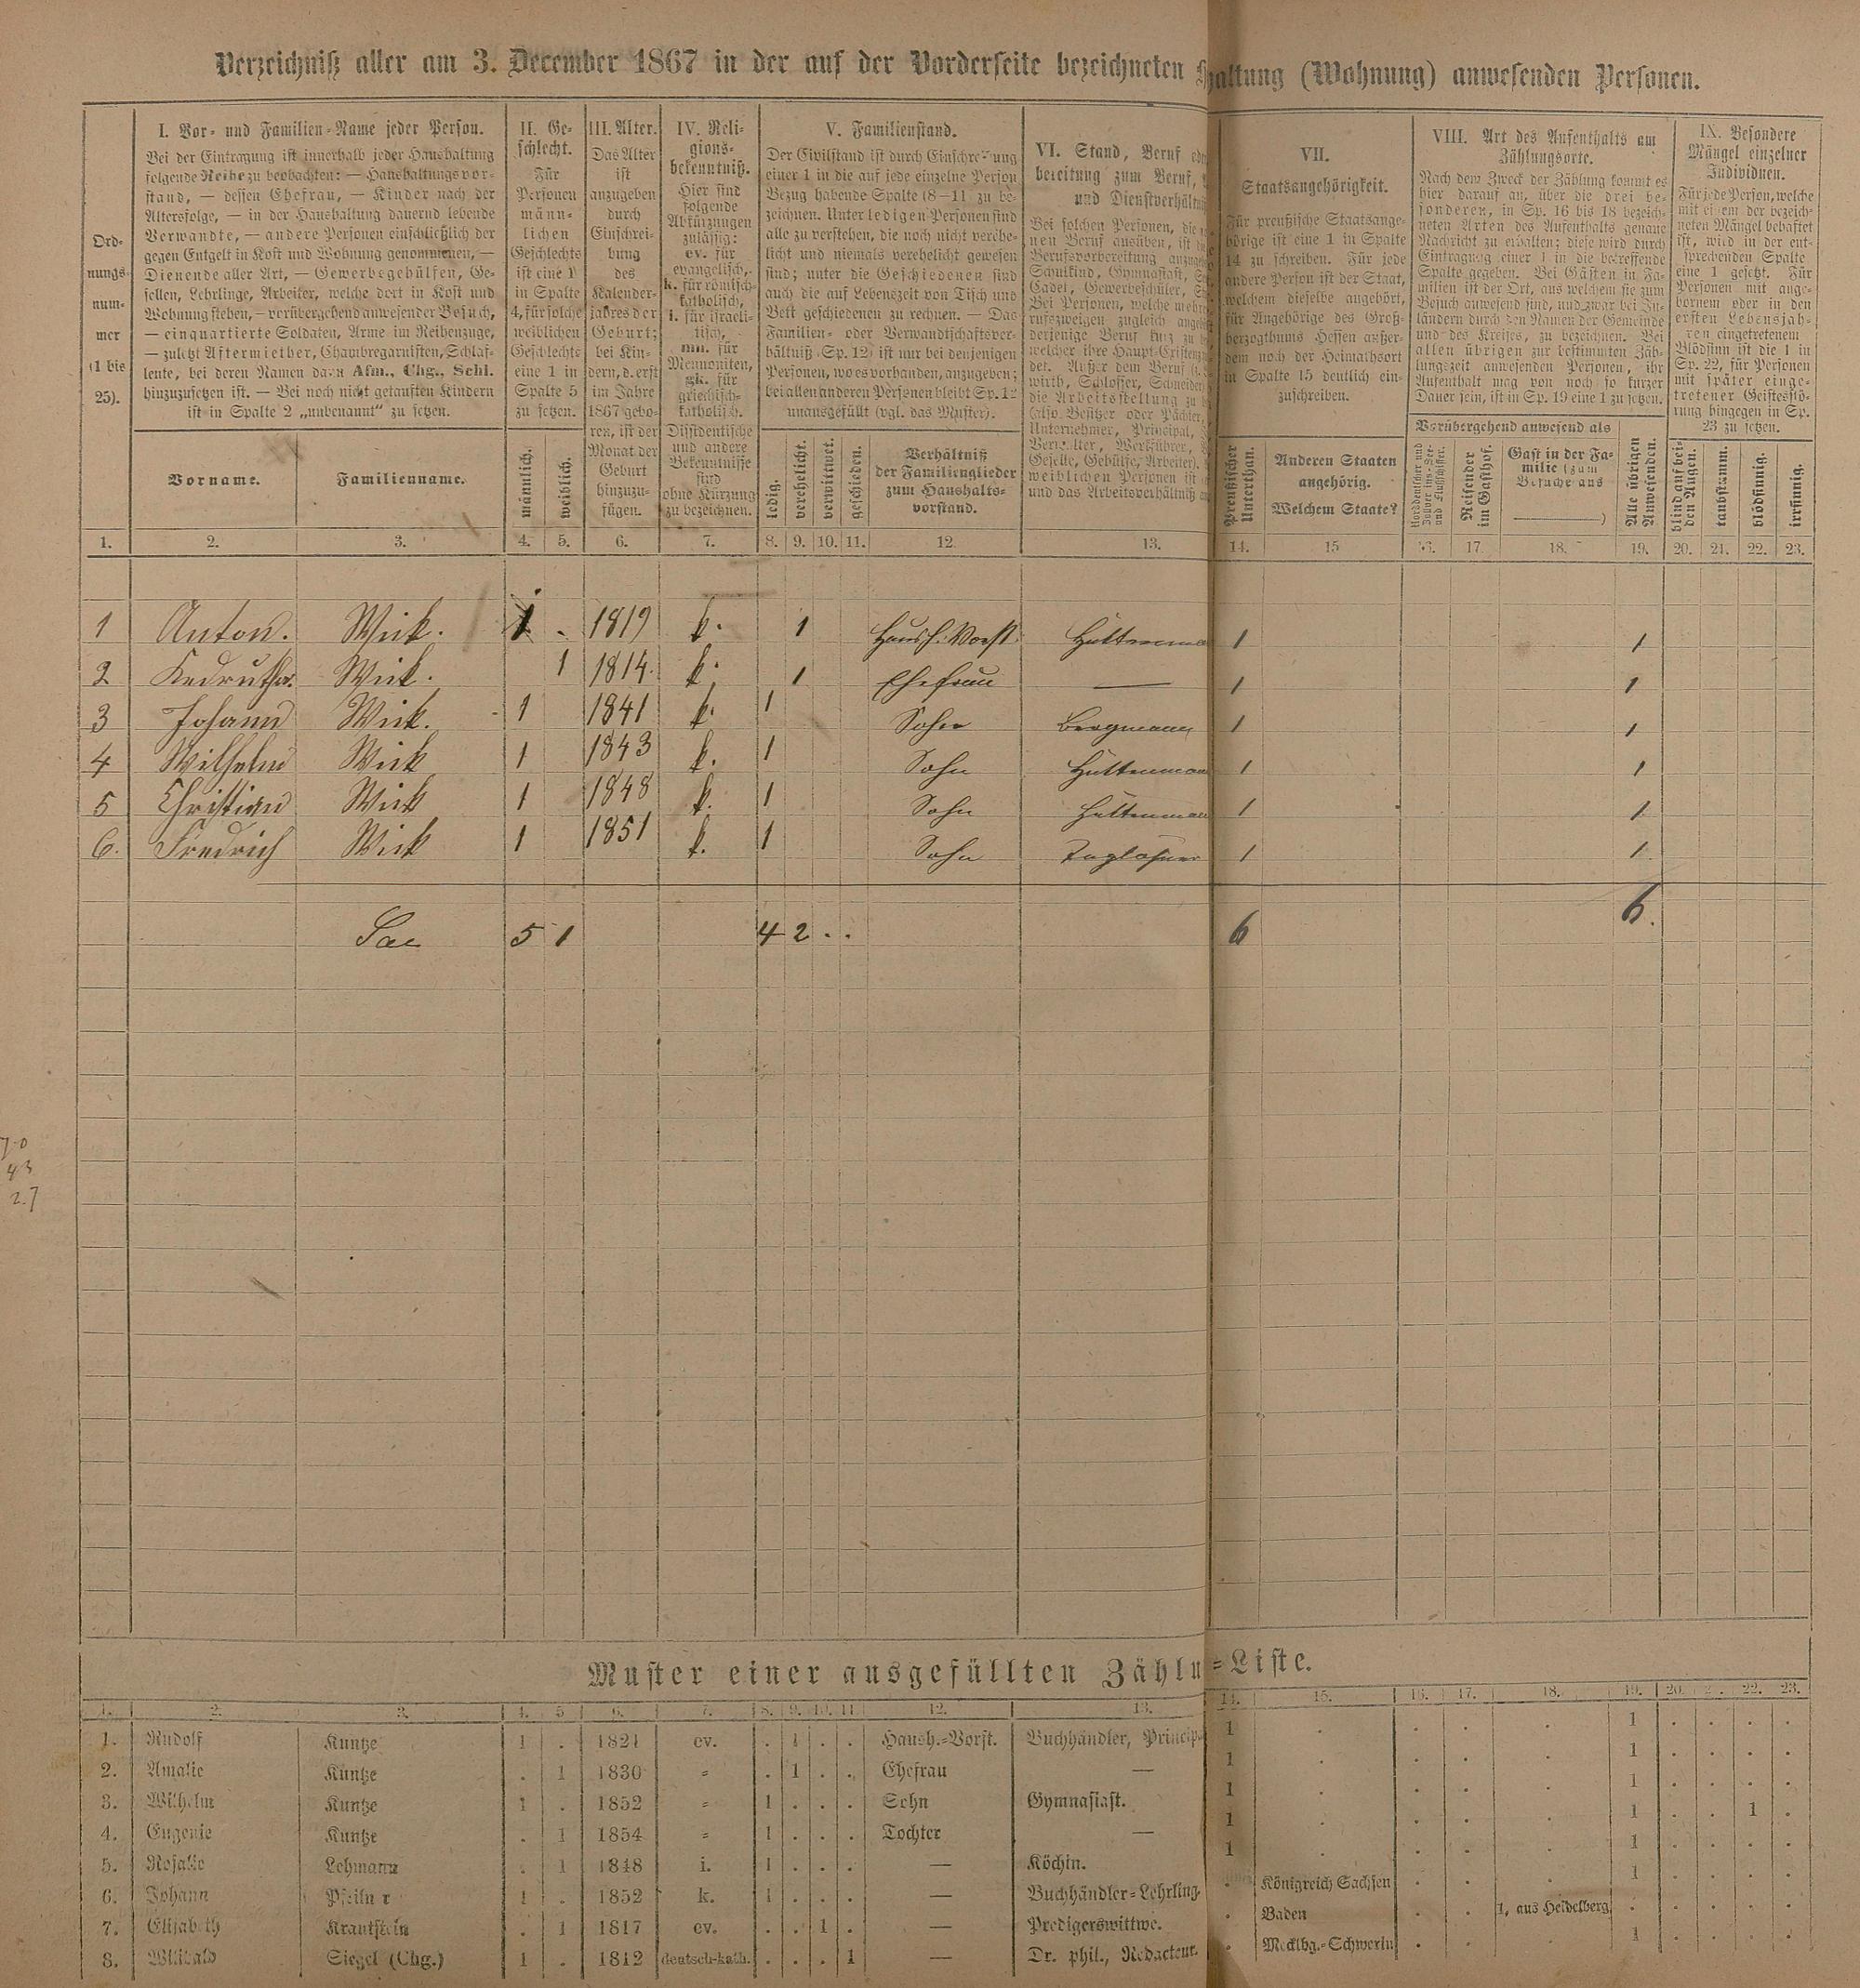 Verzeichniß aller am 3. December 1867 in der auf der Vorderseite bezeichneten haltung (Wohnung) anwesenden Personen.
Ord-
nungs-
num-
mer
(1 bis
25).
I. Vor- und Familien-Name jeder Person.
Bei der Eintragung ist innerhalb jeder Haushaltung
folgende Reihe zu beobachten: — Haushaltungsvor-
stand, — dessen Ehefrau, — Kinder nach der
Altersfolge, — in der Haushaltung dauernd lebende
Verwandte, — andere Personen einschließlich der
gegen Entgelt in Kost und Wohnung genommenen, —
Dienende aller Art, — Gewerbsgehülfen, Ge-
sellen, Lehrlinge, Arbeiter, welche dort in Kost und
Wohnung stehen, — vorübergehend anwesender Besuch,
— einquartierte Soldaten, Arme im Reihenzuge,
— zuletzt Aftermiether, Chambregarnisten, Schlaf-
leute, bei deren Namen dann Afm., Chg., Schl.
hinzuzusetzen ist. — Bei noch nicht getauften Kindern
ist in Spalte 2 „unbenannt" zu setzen.
Vorname.
Familienname.
II. Ge-
schlecht.
Für
Personen
männ-
lichen
Geschlechts
ist eine 1
in Spalte
4, für solche
weiblichen
Geschlechts
eine 1 in
Spalte 5
zu setzen.
männlich.
weiblich.
III. Alter.
Das Alter
ist
anzugeben
durch
Einschrei-
bung
des
Kalender-
jahres der
Geburt;
bei Kin-
dern, d. erst
im Jahre
1867 gebo-
ren, ist der
Monat der
Geburt
hinzuzu-
fügen.
IV. Reli-
gions-
bekenntniß.
Hier sind
folgende
Abkürzungen
zulässig:
ev. für
evangelisch,
k. für römisch-
katholisch,
i. für israeli-
tisch,
mn. für
Mennoniten,
gk. für
griechisch-
katholisch.
Dissidentische
und andere
Bekenntnisse
sind
ohne Kürzung
zu bezeichnen.
V. Familienstand.
Der Civilstand ist durch Einschreibung
einer 1 in die auf jede einzelne Person
Bezug habende Spalte (8—11) zu be-
zeichnen. Unter ledigen Personen sind
alle zu verstehen, die noch nicht verehe-
licht und niemals verehelicht gewesen
sind; unter die Geschiedenen sind
auch die auf Lebenszeit von Tisch und
Bett geschiedenen zu rechnen. — Das
Familien- oder Verwandtschaftsver-
hältniß (Sp. 12) ist nur bei denjenigen
Personen, wo es vorhanden, anzugeben;
bei allen anderen Personen bleibt Sp. 12
unausgefüllt (vgl. das Muster).
ledig.
verehelicht.
verwittwet.
geschieden.
Verhältniß
der Familienglieder
zum Haushalts-
vorstand.
VI. Stand, Beruf
bereitung zum Beruf,
und Dienstverhält
Bei solchen Personen, die
nen Beruf ausüben, ist
Berufsvorbereitung
Schulkind, Gymnasiast,
Cadet, Gewerbeschüler,
Bei Personen, welche mehr
rufszweigen zugleich
derjenige Beruf kurz zu
welcher ihre Haupt-Existenz
det. Außer dem Beruf
wirth, Schlosser, Schneider
die Arbeitsstellung zu
(also Besitzer oder Pächter,
Unternehmer, Principal,
Verwalter, Werkführer,
Geselle, Gehülfe, Arbeiter).
weiblichen Personen ist
und das Arbeitsverhältniß
VII.
Staatsangehörigkeit.
Für preußische Staatsange-
hörige ist eine 1 in Spalte
14 zu schreiben. Für jede
andere Person ist der Staat,
welchem dieselbe angehört,
für Angehörige des Groß-
herzogthums Hessen außer-
dem noch der Heimathsort
in Spalte 15 deutlich ein-
zuschreiben.
Preußischer
Unterthan.
Anderen Staaten
angehörig.
Welchem Staate?
VIII. Art des Aufenthalts am
Zählungsorte.
Nach dem Zweck der Zählung kommt es
hier darauf an, über die drei be-
sonderen, in Sp. 16 bis 18 bezeich-
neten Arten des Aufenthalts genaue
Nachricht zu erhalten; diese wird durch
Eintragung einer 1 in die betreffende
Spalte gegeben. Bei Gästen in Fa-
milien ist der Ort, aus welchem sie zum
Besuch anwesend sind, und zwar bei In-
ländern durch den Namen der Gemeinde
und des Kreises, zu bezeichnen. Bei
allen übrigen zur bestimmten Zäh-
lungszeit anwesenden Personen, ihr
Aufenthalt mag von noch so kurzer
Dauer sein, ist in Sp. 19 eine 1 zu setzen.
Vorübergehend anwesend als
Reisender
im Gasthof.
Gast in der Fa-
milie (zum
Besuche aus
)
Alle übrigen
Anwesenden.
IX. Besondere
Mängel einzelner
Individuen.
Für jede Person, welche
mit einem der bezeich-
neten Mängel behaftet
ist, wird in der ent-
sprechenden Spalte
eine 1 gesetzt. Für
Personen mit ange-
bornem oder in den
ersten Lebensjah-
ren eingetretenem
Blödsinn ist die 1 in
Sp. 22, für Personen
mit später einge-
tretener Geistesstö-
rung hingegen in Sp.
23 zu setzen.
blind auf bei-
den Augen.
taubstumm.
blödsinnig.
irrsinnig.
1. 2. 3. 4. 5. 6. 7. 8. 9. 10. 11. 12. 13. 14. 15 16. 17. 18. 19. 20. 21. 22. 23.
1 Anton. Wick. 1 . 1819 k. 1 Haush. Vorst. Hüttenma 1 1
2 Wick. 1 1814. k. 1 Ehefrau — 1 1
3 Johann Wick. 1 1841 k. 1 Sohn Bergmann 1 1
4 Wilhelm Wick 1 1843 k. 1 Sohn Hüttenman 1 1
5 Christian Wick 1 1848 k. 1 Sohn Hüttenman 1 1
6. Friedrich Wick 1 1851 k. 1 Sohn Taglöhner 1 1.
5 1 4 2 . . 6 6.
70
43
27
Muster einer ausgefüllten Zählu =Liste.
1. 2. 3. 4. 5 6. 7. 8. 9. 10. 11 12. 13. 14. 15. 16. 17. 18. 19. 20. 2 . 22. 23.
1. Rudolf Kuntze 1 . 1821 ev. . 1 . . Haush.=Vorst. Buchhändler, Princip 1 . . . . 1 . . . .
2. Amalie Kuntze . 1 1830 = . 1 . . Ehefrau — 1 . . . . 1 . . . .
3. Wilhelm Kuntze 1 . 1852 = 1 . . . Sohn Gymnasiast. 1 . . . . 1 . . . .
4. Eugenie Kuntze . 1 1854 = 1 . . . Tochter — 1 . . . . 1 . . 1 .
5. Rosalie Lehmann . 1 1848 i. 1 . . . — Köchin. 1 . . . . 1 . . . .
6. Johann 1 . 1852 k. 1 . . . — Buchhändler=Lehrling. . Königreich Sachsen . . . 1 . . . .
7. Elisabeth Krautstein . 1 1817 ev. . . 1 . — Predigerswittwe. . Baden . . 1, aus Heidelberg . . . . .
8. Willibald Siegel (Chg.) 1 . 1812 deutsch-kath. . . . 1 — Dr. phil., Redacteur. . Mecklbg.=Schwerin . . . 1 . . . .